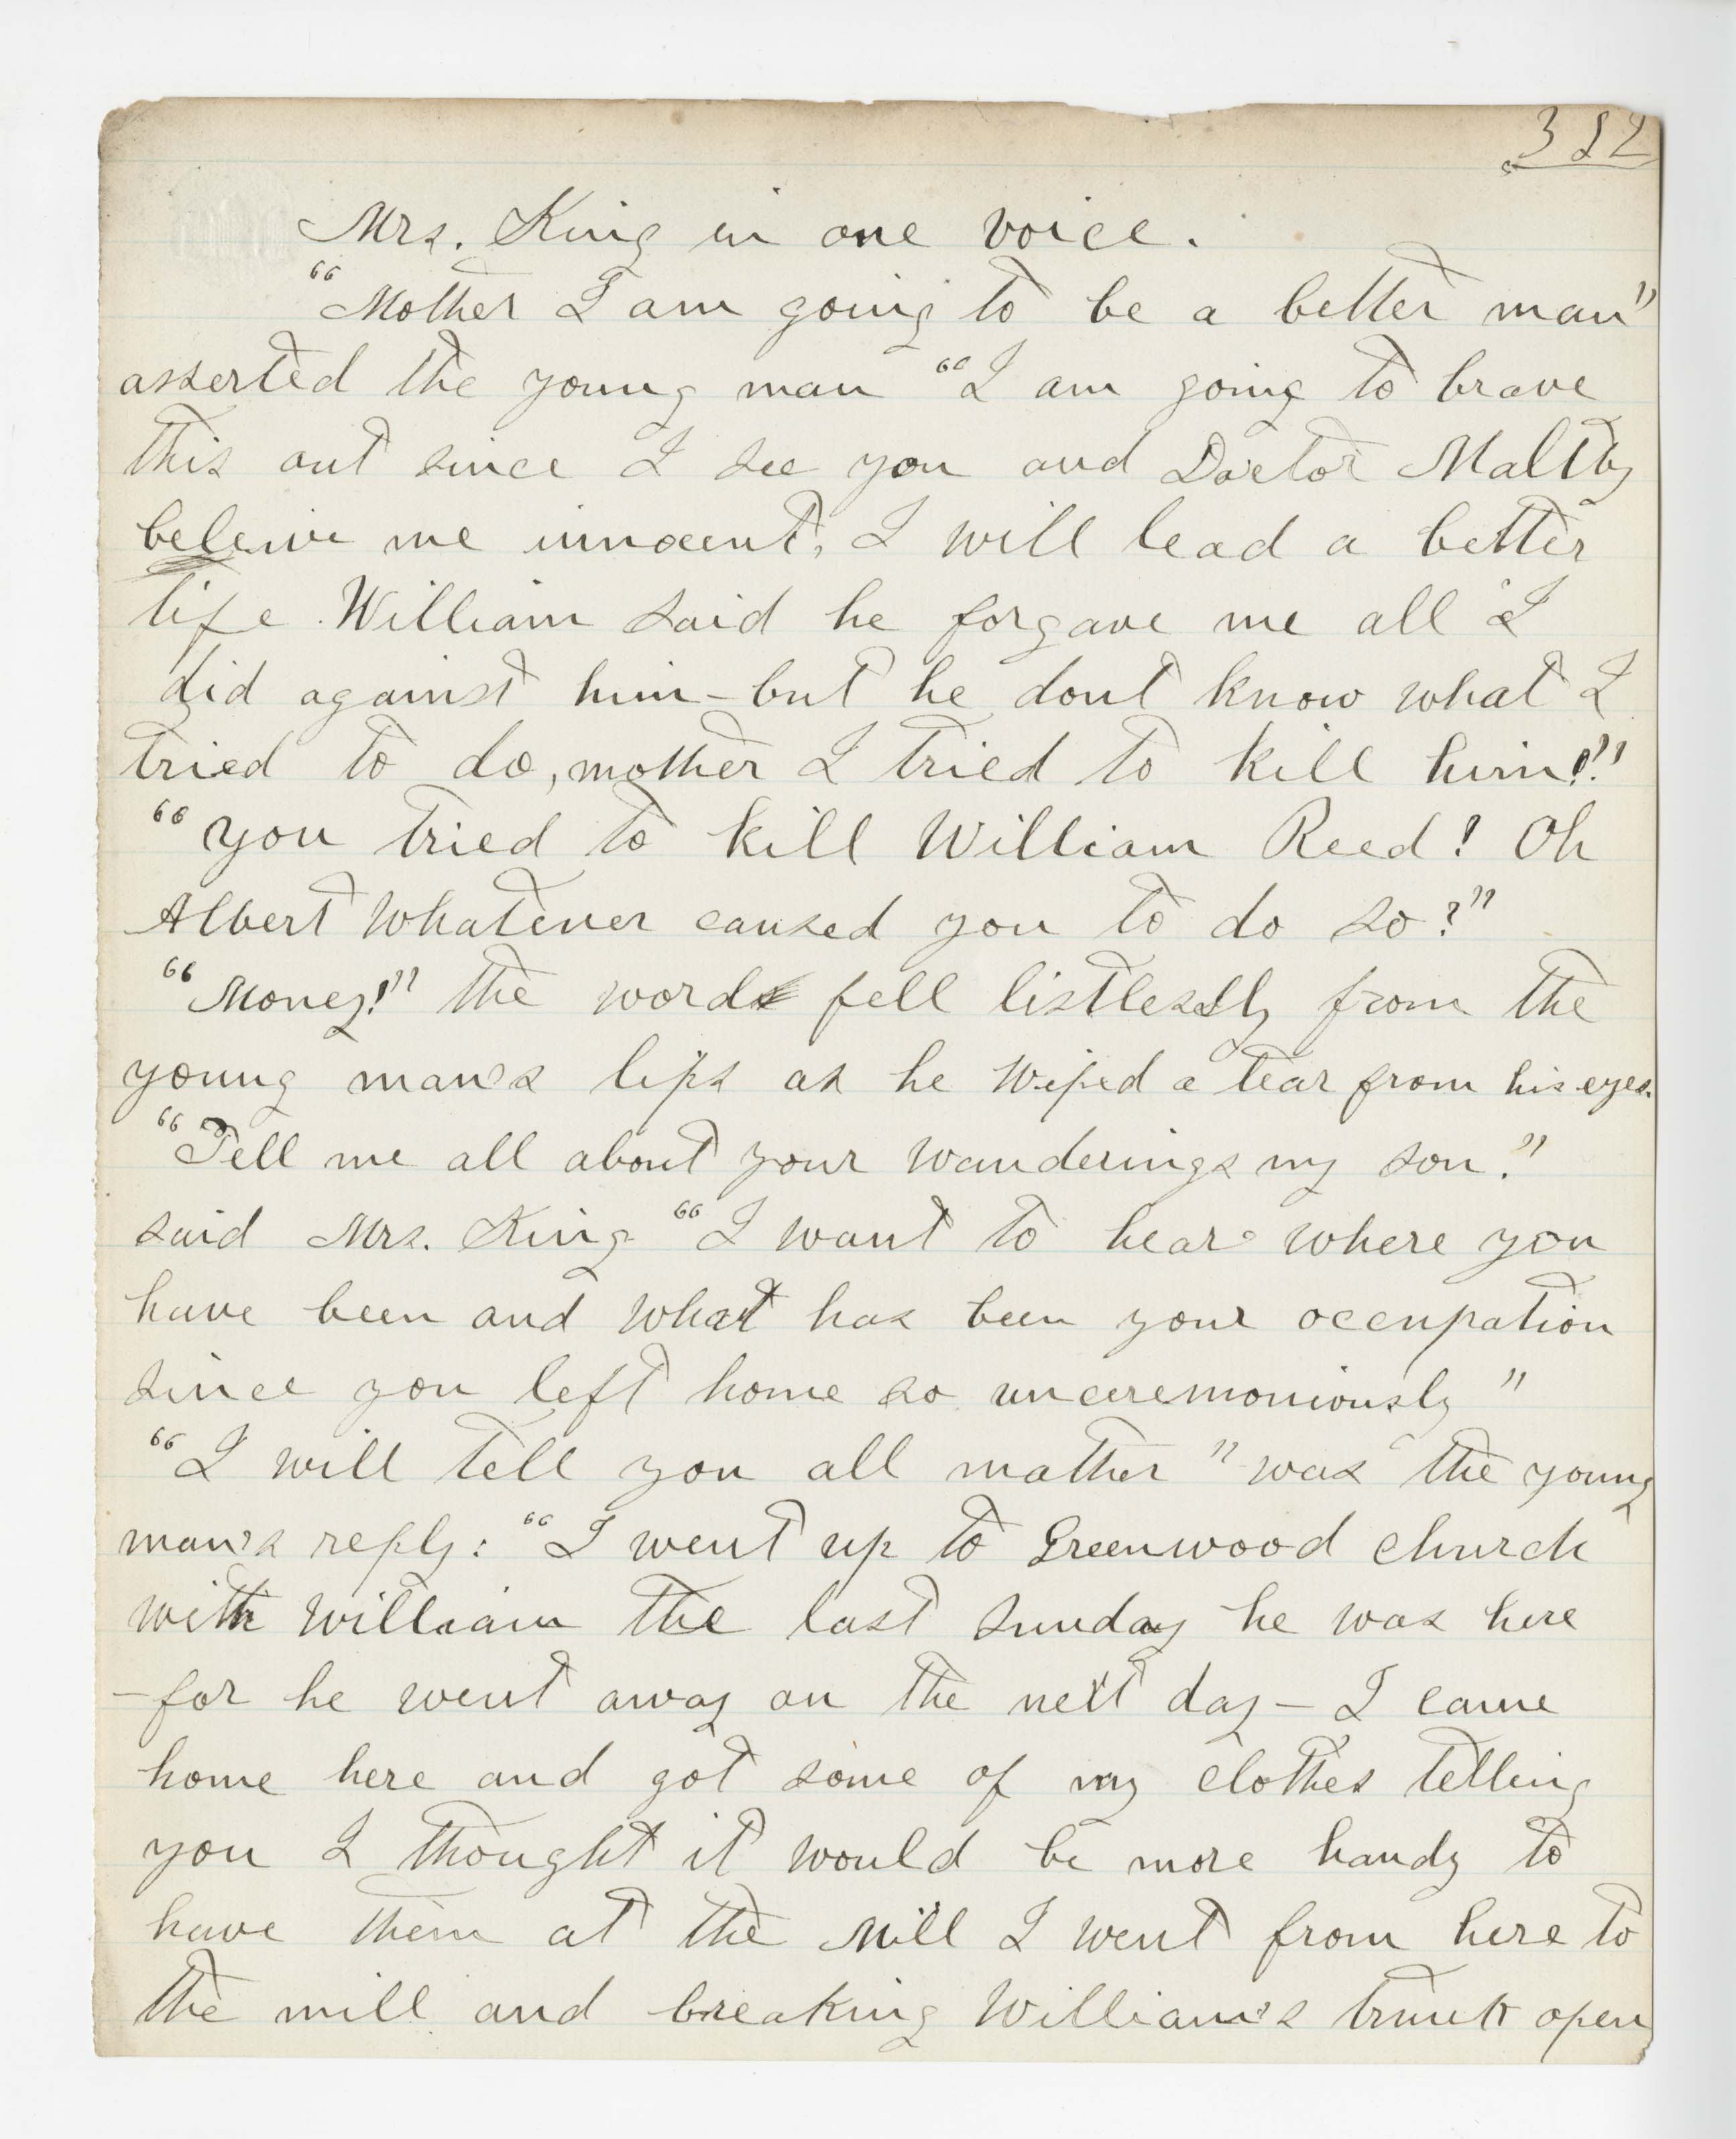 312
Mrs. King in one voice.
"Mother I am going to be a better man"
asserted the young man "I am going to brave
this out since I see you and Doctor Maltby
beleive me innocent, I will lead a better
life. William said he forgave me all I
did against him - but he dont know what I
tried to do, mother I tried to kill him!"
"you tried to kill William Reed! Oh
Albert whatever caused you to do so?"
"Money!" the word fell listlessly from the
young man's lips as he wiped a tear from his eyes.
"Tell me all about your wanderings my son."
said Mrs. King "I want to hear where you
have been and what has been your occupation
since you left home so unceremoniously"
"I will tell you all mother" was the young
man's reply: "I went up to Greenwood church
with William the last Sunday he was here
- for he went away on the next day - I came
home here and got some of my clothes telling
you I thought it would be more handy to
have them at the mill I went from here to
the mill and breaking William's trunk open